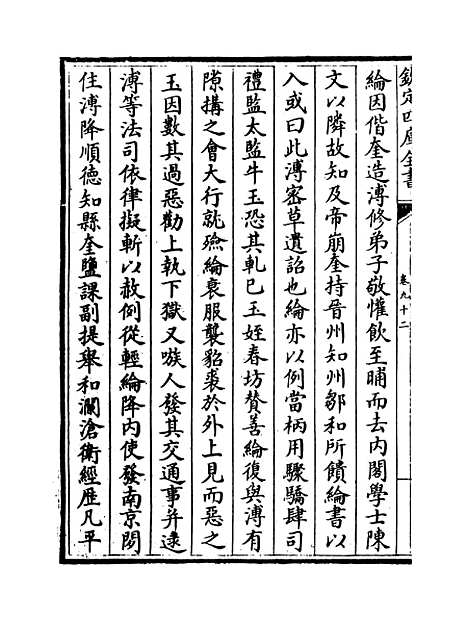 欽定四庫全書
卷九十二
綸因偕奎造溥修弟子敬懽飲至晡而去内閣學士陳
文以隣故知及帝崩奎持晉州知州鄒和所饋綸書以
入或曰此溥宻草遺詔也綸亦以例當柄用驟驕肆司
禮監太監牛玉恐其軋已玉姪春坊賛善綸復與溥有
隙搆之會大行就殮綸衰服襲貂裘於外上見而惡之
玉因數其過惡勸上執下獄又嗾人發其交通事并逮
溥等法司依律擬斬以赦例從輕綸降内使發南京閒
住溥降順德知縣奎鹽課副提舉和瀾滄衛經歴凡平